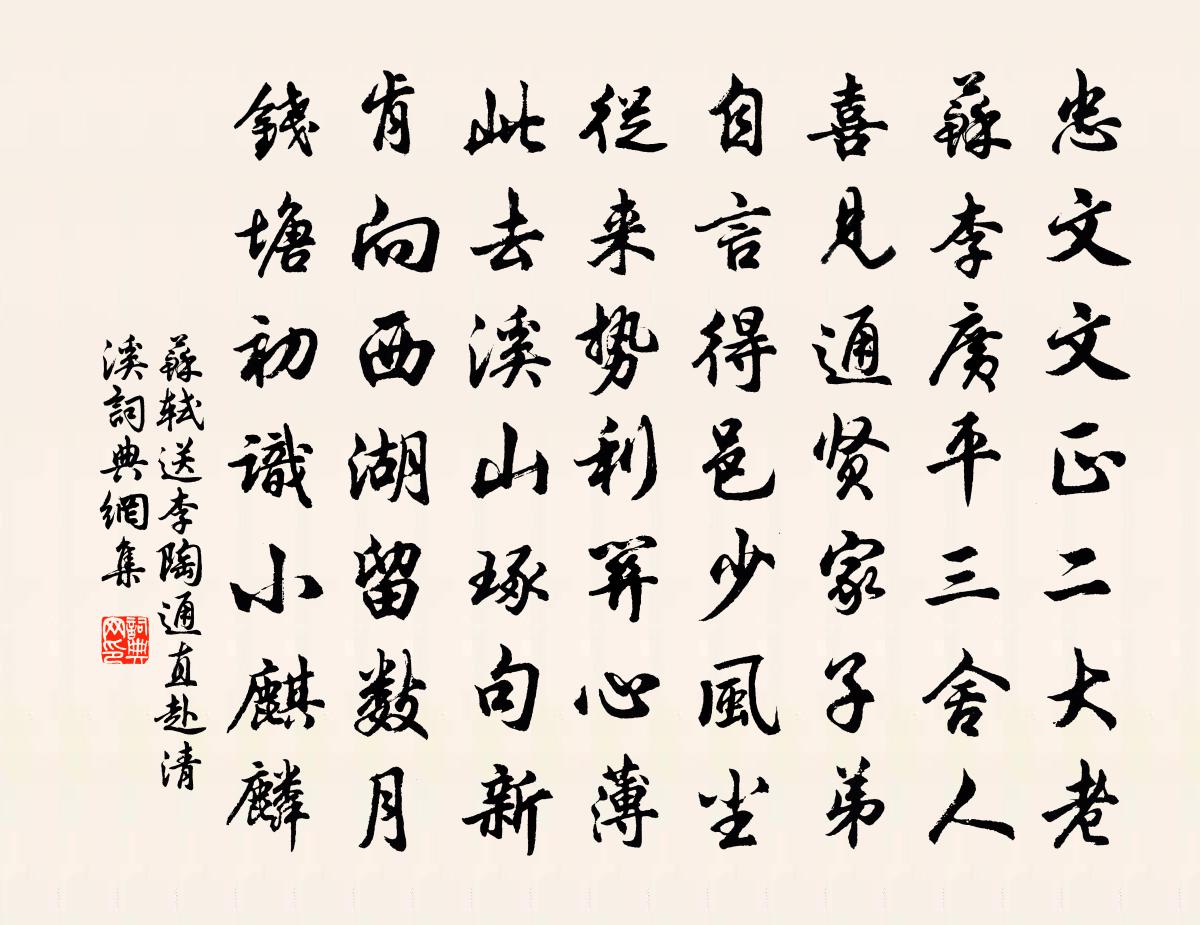 忠文文正二大老
蘇李廣平三舍人
喜見通贤家子弟
自言得邑少風尘
從来势利關心薄
此去溪山琢句新
肯向西湖留数月
錢塘初識小麒麟
蘇軾送李陶通直赴清
溪詞典網集
詞典网印